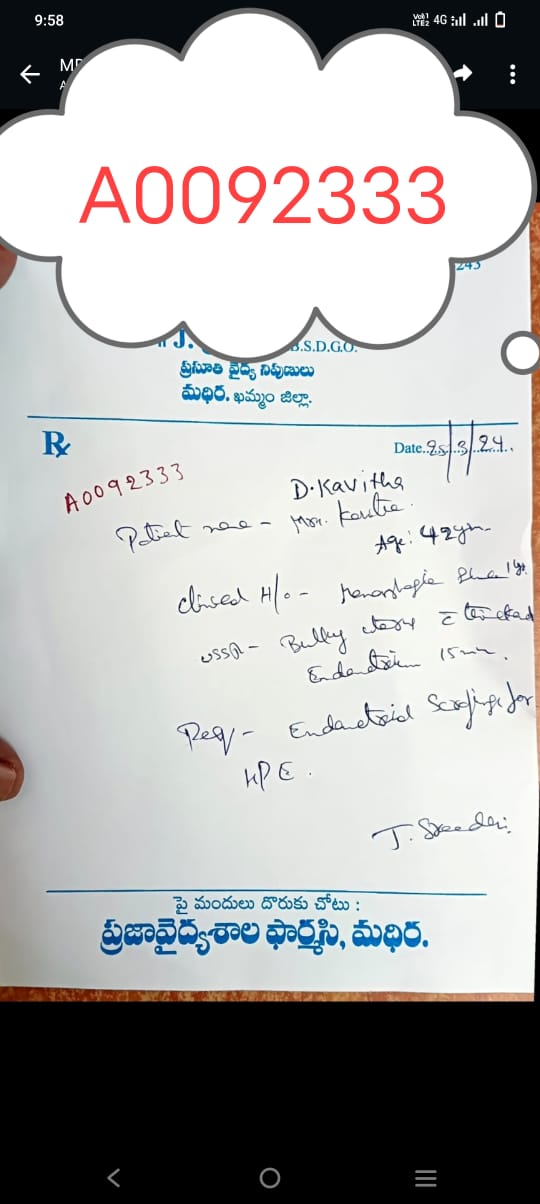 9:58
Vo1) LTE2 4G
A0092333
243
J.
B.S.D.G.O.
ప్రసూతి వైద్య నిపుణులు
మధిర. ఖమ్మం జిల్లా.
Rx
Date..25/3/24..
A0092333
D.Kavitha
Patient name - Mrs. Kavitha.
Age: 42yrs
Clinical H/o - Menorrhagia since 1yr.
USG - Bulky uterus c thickened
Endometrium 15mm.
Req - Endometrial Scrapings for
HPE.
J. Sreedevi
పై మందులు దొరుకు చోటు :
ప్రజావైద్యశాల ఫార్మసి, మధిర.